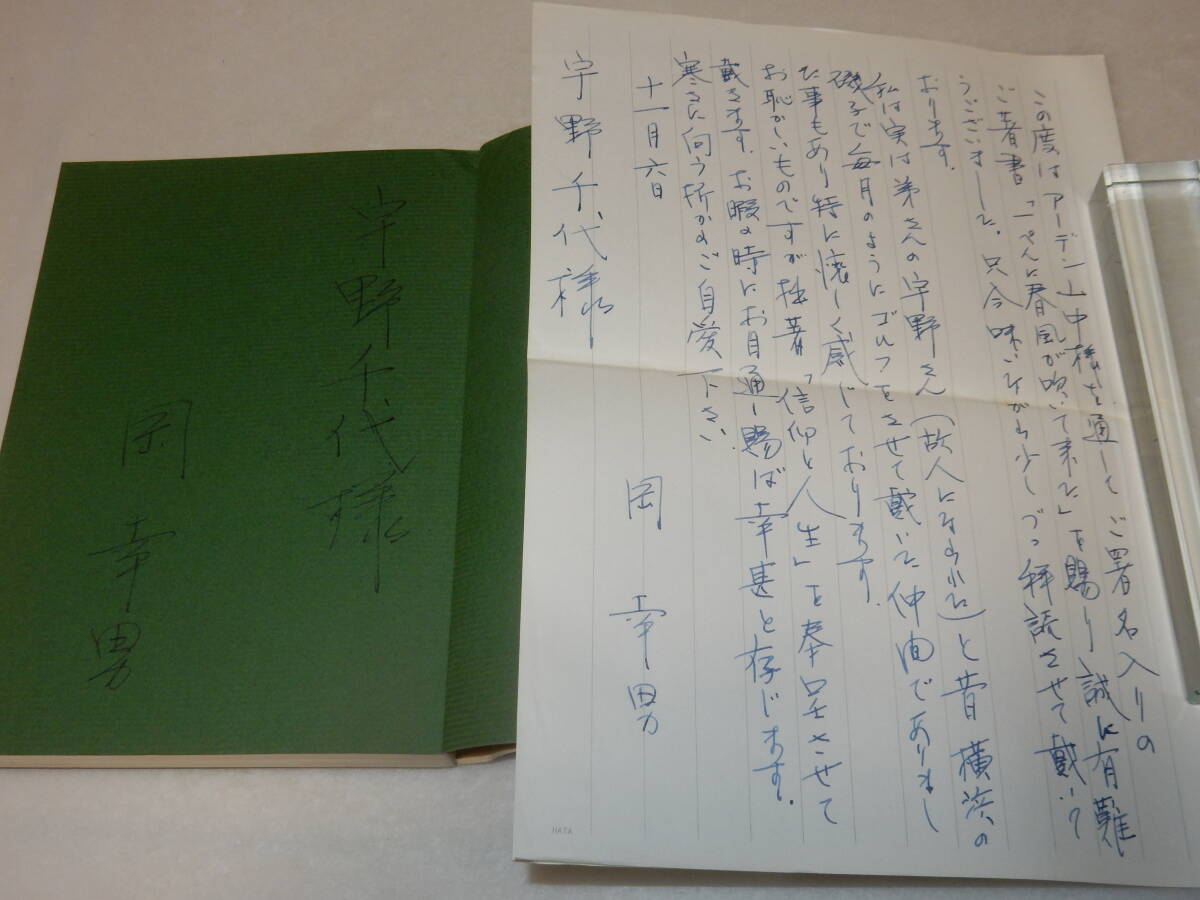 この度はアーデン山中様を通してご署名入りの
ご著書「一ぺんに春風が吹いて来た」を賜り誠に有難
うございました。只今味いながら少しづつ拝読させて戴いて
おります。
私は実は弟さんの宇野さん(故人になられた)と昔横浜の
磯子で毎月のようにゴルフをさせて戴いた仲間でありまし
た事もあり特に懐しく感じております。
お恥かしいものですが拙著「信仰と人生」を奉呈させて
戴きます。お暇の時にお目通し賜ば幸甚と存じます。
寒さに向う折からご自愛下さい
十一月六日
岡 幸男
宇野千代様
宇野千代様
岡 幸男
HATA